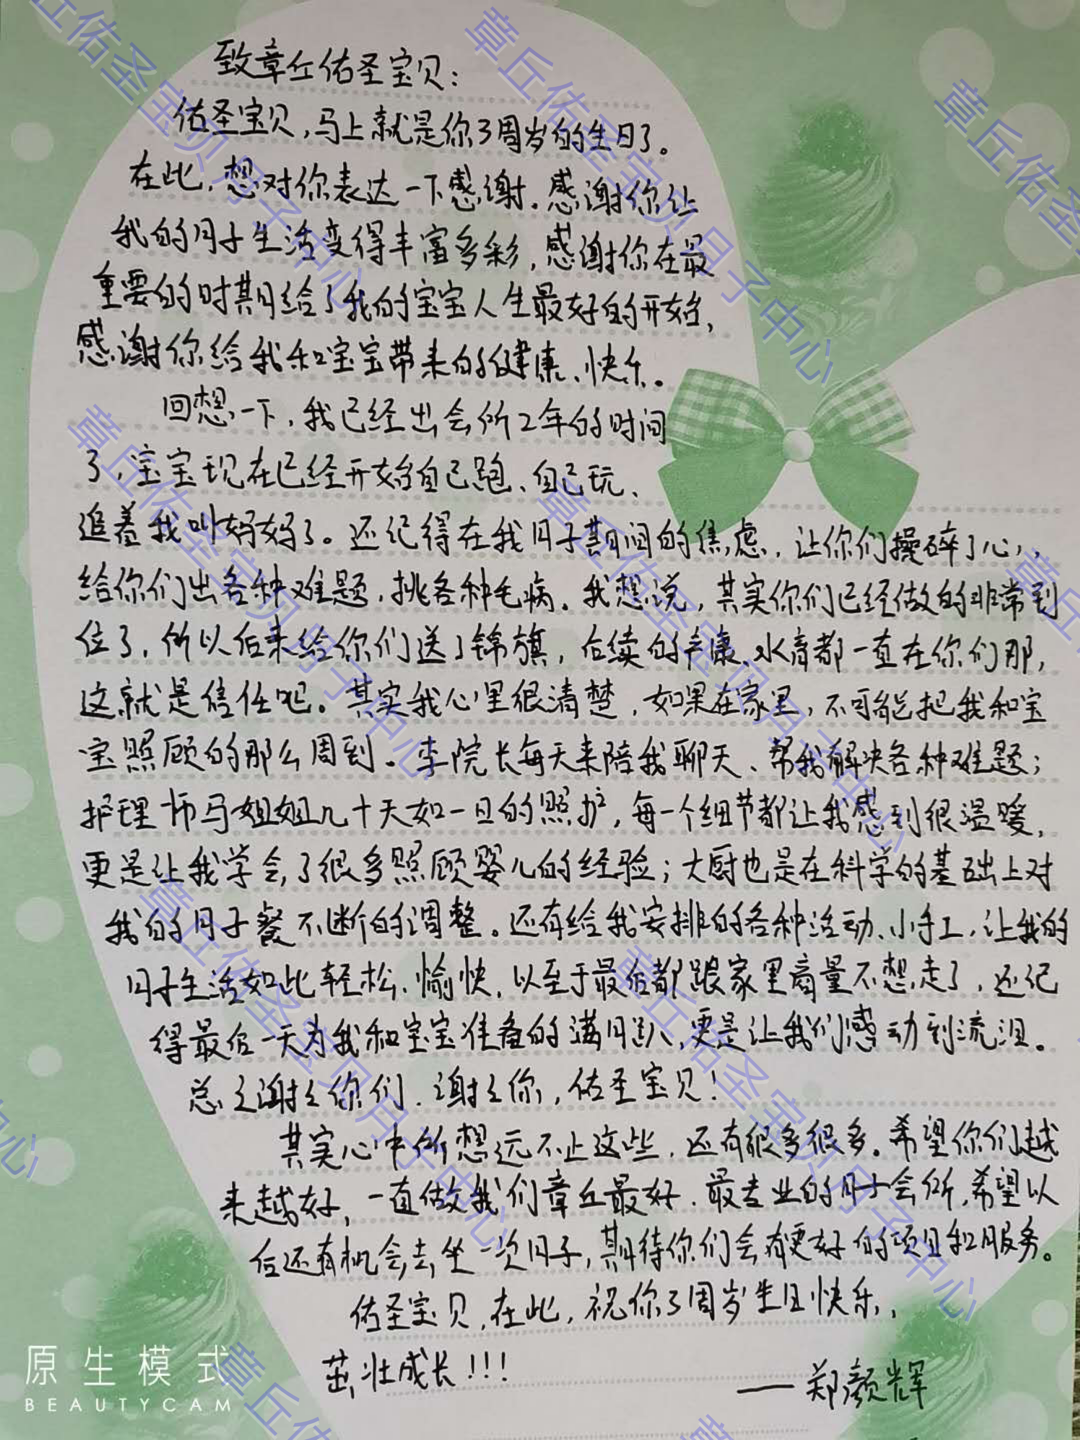 致章丘佑圣宝贝：
佑圣宝贝，马上就是你3周岁的生日了。
在此，想对你表达一下感谢。感谢你让
我的月子生活变得丰富多彩，感谢你在最
重要的时期给了我的宝宝人生最好的开始，
感谢你给我和宝宝带来的健康、快乐。
回想一下，我已经出会所2年的时间
了，宝宝现在已经开始自己跑、自己玩、
追着我叫妈妈了。还记得在我月子期间的焦虑，让你们操碎了心，
给你们出各种难题，挑各种毛病。我想说，其实你们已经做的非常到
位了，所以后来给你们送了锦旗，后续的产康、水育都一直在你们那，
这就是信任吧。其实我心里很清楚，如果在家里，不可能把我和宝
宝照顾的那么周到。李院长每天来陪我聊天、帮我解决各种难题；
护理师马姐姐几十天如一日的照护，每一个细节都让我感到很温暖，
更是让我学会了很多照顾婴儿的经验；大厨也是在科学的基础上对
我的月子餐不断的调整。还有给我安排的各种活动、小手工，让我的
月子生活如此轻松、愉快，以至于最后都跟家里商量不想走了，还记
得最后一天为我和宝宝准备的满月趴，更是让我们感动到流泪。
总之谢谢你们，谢谢你，佑圣宝贝！
其实心中所想远不止这些，还有很多很多。希望你们越
来越好，一直做我们章丘最好、最专业的月子会所，希望以
后还有机会去坐一次月子，期待你们会有更好的项目和服务。
佑圣宝贝，在此，祝你3周岁生日快乐，
茁壮成长！！！
——郑颜辉
原生模式
BEAUTYCAM
章丘佑圣宝贝月子中心
章丘佑圣宝贝月子中心
章丘佑圣宝贝月子中心
章丘佑圣宝贝月子中心
章丘佑圣宝贝月子中心